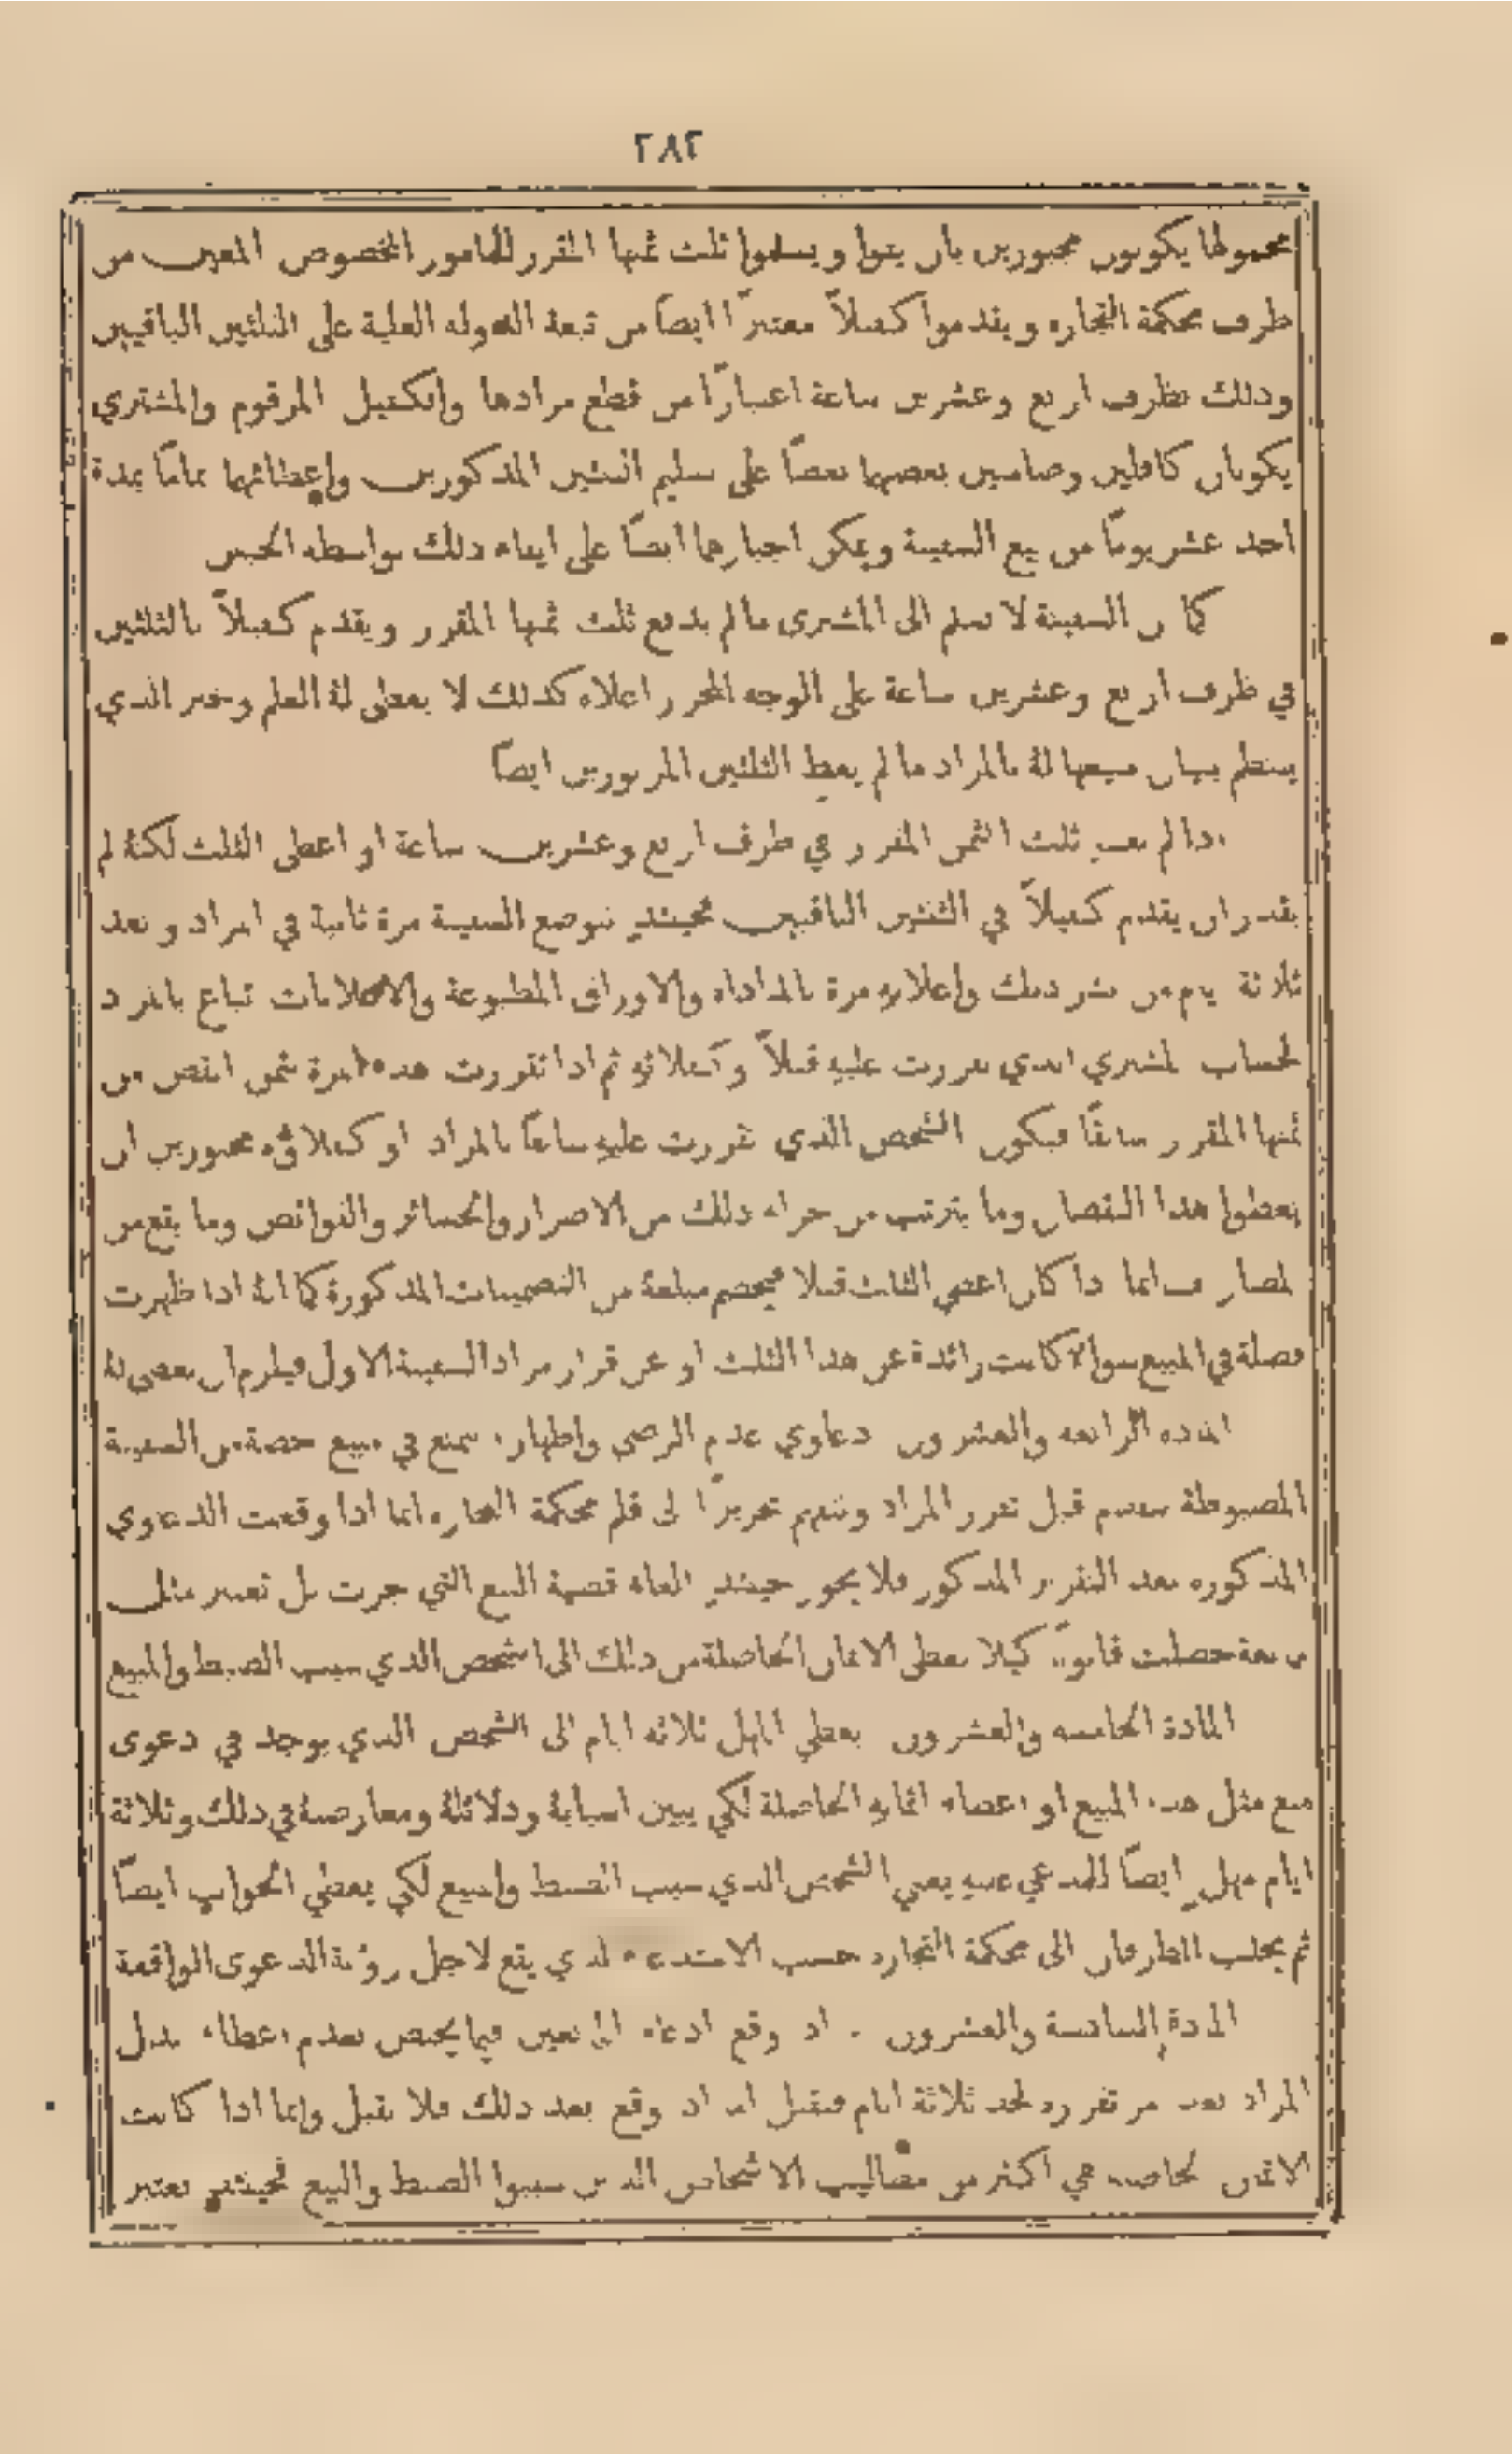 ٢٨٢
يكونون مجبورين بان يتوا ويسلموا ثلث ثمنها المقرر للمامور المخصوص المعين من
طرف محكمة التجاره ويقدموا كفيلاً معتبرًا ايضاً من تبعة الدوله العلية على الثلثين الباقيين
وذلك بظرف اربع وعشرين ساعة اعتبارًا من قطع مزادها والكفيل المرقوم والمشتري
يكونان كافلين وضامنين بعضها بعضًا على تسليم الثلثين المذكورين واعطائها تمامًا بمدة
احد عشر يومًا من بيع السفينة ويمكن اجبارها ايضًا على ايفاء ذلك بواسطة الحبس
كما ان السفينة لا تسلم الى المشتري ما لم يدفع ثلث ثمنها المقرر ويقدم كفيلاً بالثلثين
في ظرف اربع وعشرين ساعة على الوجه المحرر اعلاه كذلك لا يعطى لهُ العلم وخبر الذي
ينظم ببيان مبيعها لهُ بالمزاد ما لم يعطِ الثلثين المزبورين ايضًا
اذا لم يعطِ ثلث الثمن المقرر في ظرف اربع وعشرين ساعة او اعطى الثلث لكنهُ لم
يقدر ان يقدم كفيلاً في الثلثين الباقيين فحينئذٍ توضع السفينة مرة ثانية في المزاد وبعد
ثلاثة ايام من نشر ذلك واعلانهِ مرة بالمناداة والاوراق المطبوعة والاعلانات تباع بالمزاد
لحساب المشتري الذي تقررت عليهِ قبلاً وكفلائهِ ثم اذا تقررت هذه المرة بثمن انقص من
ثمنها المقرر سابقًا فيكون الشخص الذي تقررت عليهِ سابقًا بالمزاد او كفلاؤه مجبورين ان
يعطوا هذا النقصان وما يترتب من جراء ذلك من الاضرار والخسائر والنواقص وما يقع من
المصاريف انما اذا كان اعطى الثلث قبلا فيخصم مبلغهُ من التضمينات المذكورة كما انهُ اذا ظهرت
فضلة في المبيع سواء كانت زائدة عن هذا الثلث او عن قرار مزاد السفينة الاول فيلزم ان يعطى لهُ
الماده الرابعه والعشرون دعاوي عدم الرضى واظهار التمنع في مبيع حصة من السفينة
المضبوطة تقدم قبل تقرر المزاد وتفهم تحريرًا الى قلم محكمة التجاره انما اذا وقعت الدعاوي
المذكوره بعد التقرير المذكور فلا يجوز حينئذٍ الغاء قضية البيع التي جرت بل تعتبر مثل
حصلت قانونًا كيلا تعطى الاثمان الحاصلة من ذلك الى الشخص الذي سبب الضبط والمبيع
المادة الخامسه والعشرون يعطي المهل ثلاثه ايام الى الشخص الذي يوجد في دعوى
منع مثل هذه المبيع او اعطاء اثمانهِ الحاصلة لكي يبين اسبابهُ ودلائلهُ ومعارضهُ في ذلك وثلاثة
ايام مهلٍ ايضًا للمدعي عليهِ يعني الشخص الذي سبب الضبط والمبيع لكي يعطي الجواب ايضًا
ثم يجلب الطرفان الى محكمة التجاره حسب الاستدعاء الذي يقع لاجل رؤية الدعوى الواقعة
المادة السادسة والعشرون اذا وقع ادعاء المانعين فيما يختص بعدم اعطاء بدل
المزاد بعد تقرره لحد ثلاثة ايام فيقبل اما اذا وقع بعد ذلك فلا يقبل وانما اذا كانت
الاثمان الحاصلة هي اكثر من مطاليب الاشخاص الذين سببوا الضبط والبيع فحينئذٍ تعتبر